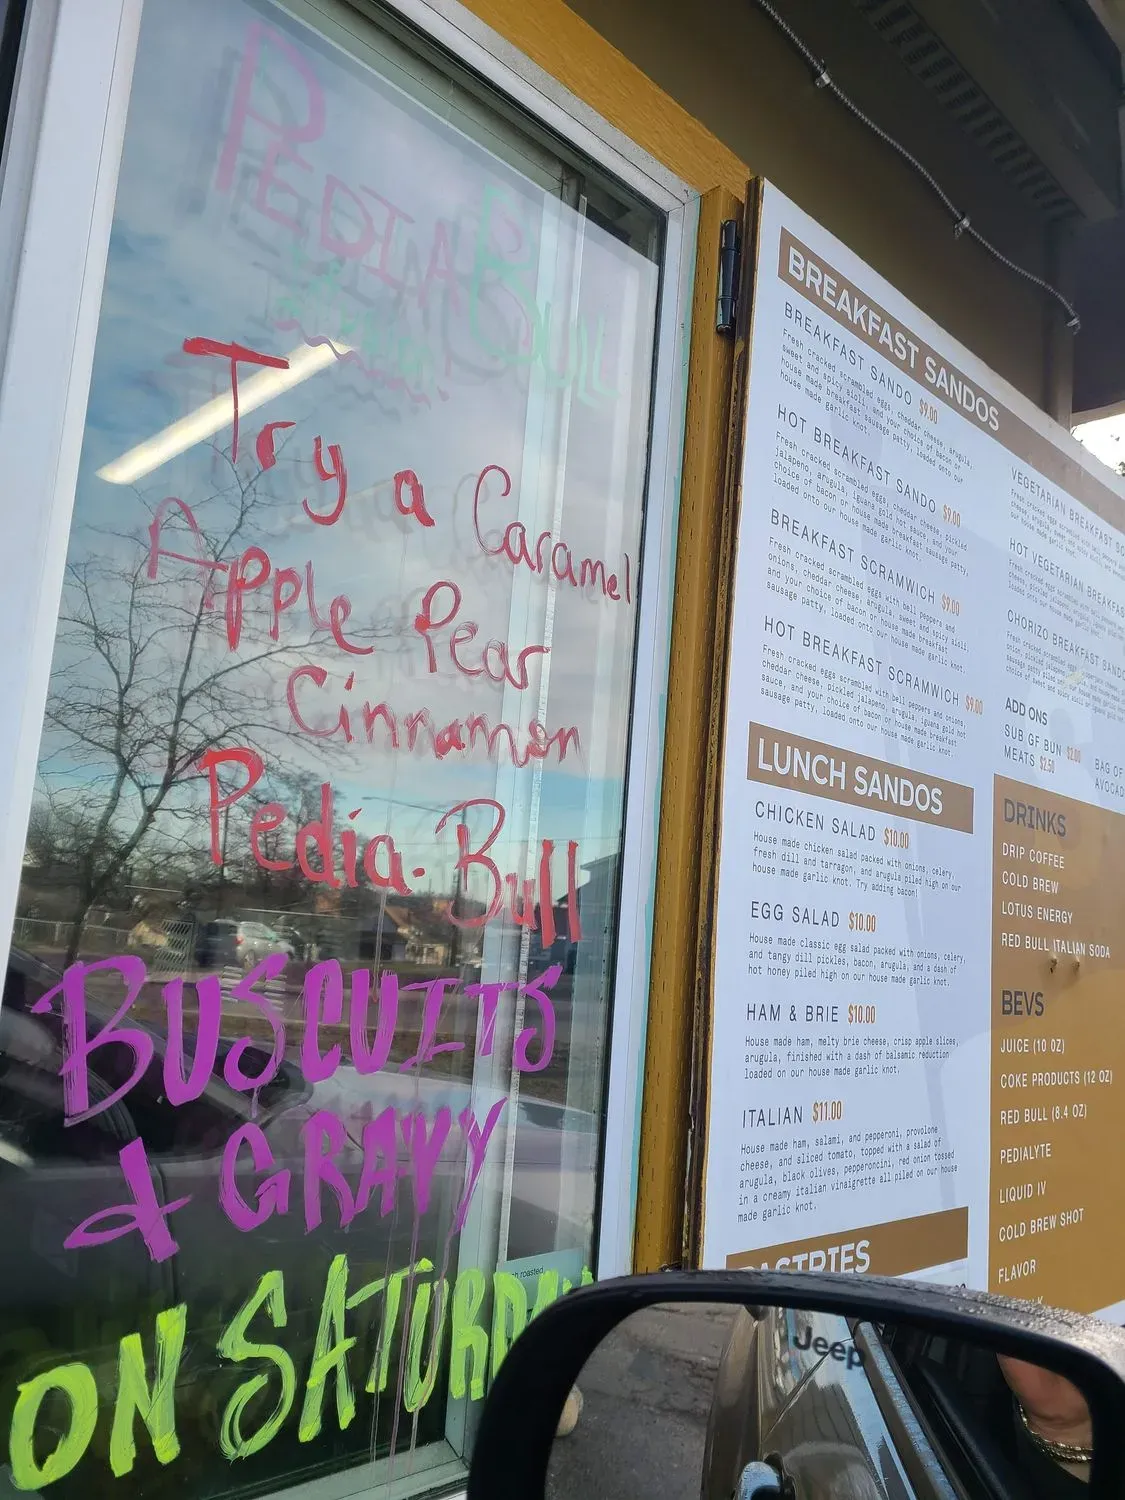 PEDIA BULL
Try a Caramel
Apple Pear
Cinnamon
Pedia-Bull
BUSCUITS
& GRAVY
ON SATURDAY
BREAKFAST SANDOS
BREAKFAST SANDO $9.00
Fresh cracked scrambled eggs, cheddar cheese, arugula,
sweet and spicy aioli and your choice of bacon or
house made breakfast sausage patty, loaded onto our
house made garlic knot.
HOT BREAKFAST SANDO $9.00
Fresh cracked scrambled eggs, cheddar cheese, pickled
jalapeno, arugula, iguana gold hot sauce, and your
choice of bacon or house made breakfast sausage patty,
loaded onto our house made garlic knot.
BREAKFAST SCRAMWICH $9.00
Fresh cracked scrambled eggs with bell peppers and
onions, cheddar cheese, arugula, sweet and spicy aioli,
and your choice of bacon or house made breakfast
sausage patty, loaded onto our house made garlic knot.
HOT BREAKFAST SCRAMWICH $9.00
Fresh cracked eggs scrambled with bell peppers and onions,
cheddar cheese, pickled jalapeno, arugula, iguana gold hot
sauce, and your choice of bacon or house made breakfast
sausage patty, loaded onto our house made garlic knot.
LUNCH SANDOS
CHICKEN SALAD $10.00
House made chicken salad packed with onions, celery,
fresh dill and tarragon, and arugula piled high on our
house made garlic knot. Try adding bacon!
EGG SALAD $10.00
House made classic egg salad packed with onions, celery,
and tangy dill pickles, bacon, arugula, and a dash of
hot honey piled high on our house made garlic knot.
HAM & BRIE $10.00
House made ham, melty brie cheese, crisp apple slices,
arugula, finished with a dash of balsamic reduction
loaded on our house made garlic knot.
ITALIAN $11.00
House made ham, salami, and pepperoni, provolone
cheese, and sliced tomato, topped with a salad of
arugula, black olives, pepperoncini, red onion tossed
in a creamy italian vinaigrette all piled on our house
made garlic knot.
PASTRIES
VEGETARIAN BREAKFAST
HOT VEGETARIAN BREAKFAST
CHORIZO BREAKFAST SANDO
ADD ONS
SUB GF BUN $2.00
MEATS $2.50
BAG OF
AVOCADO
DRINKS
DRIP COFFEE
COLD BREW
LOTUS ENERGY
RED BULL ITALIAN SODA
BEVS
JUICE (10 OZ)
COKE PRODUCTS (12 OZ)
RED BULL (8.4 OZ)
PEDIALYTE
LIQUID IV
COLD BREW SHOT
FLAVOR
roasted
Jeep